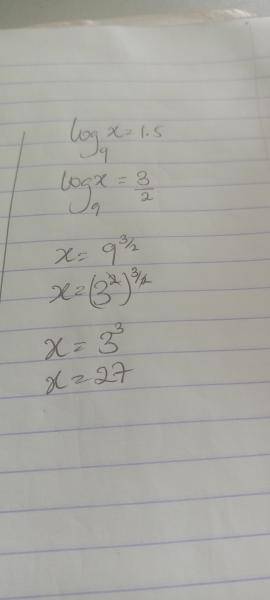 log₉x = 1.5
log₉x = 3/2
x = 9^(3/2)
x = (3²)^(3/2)
x = 3³
x = 27